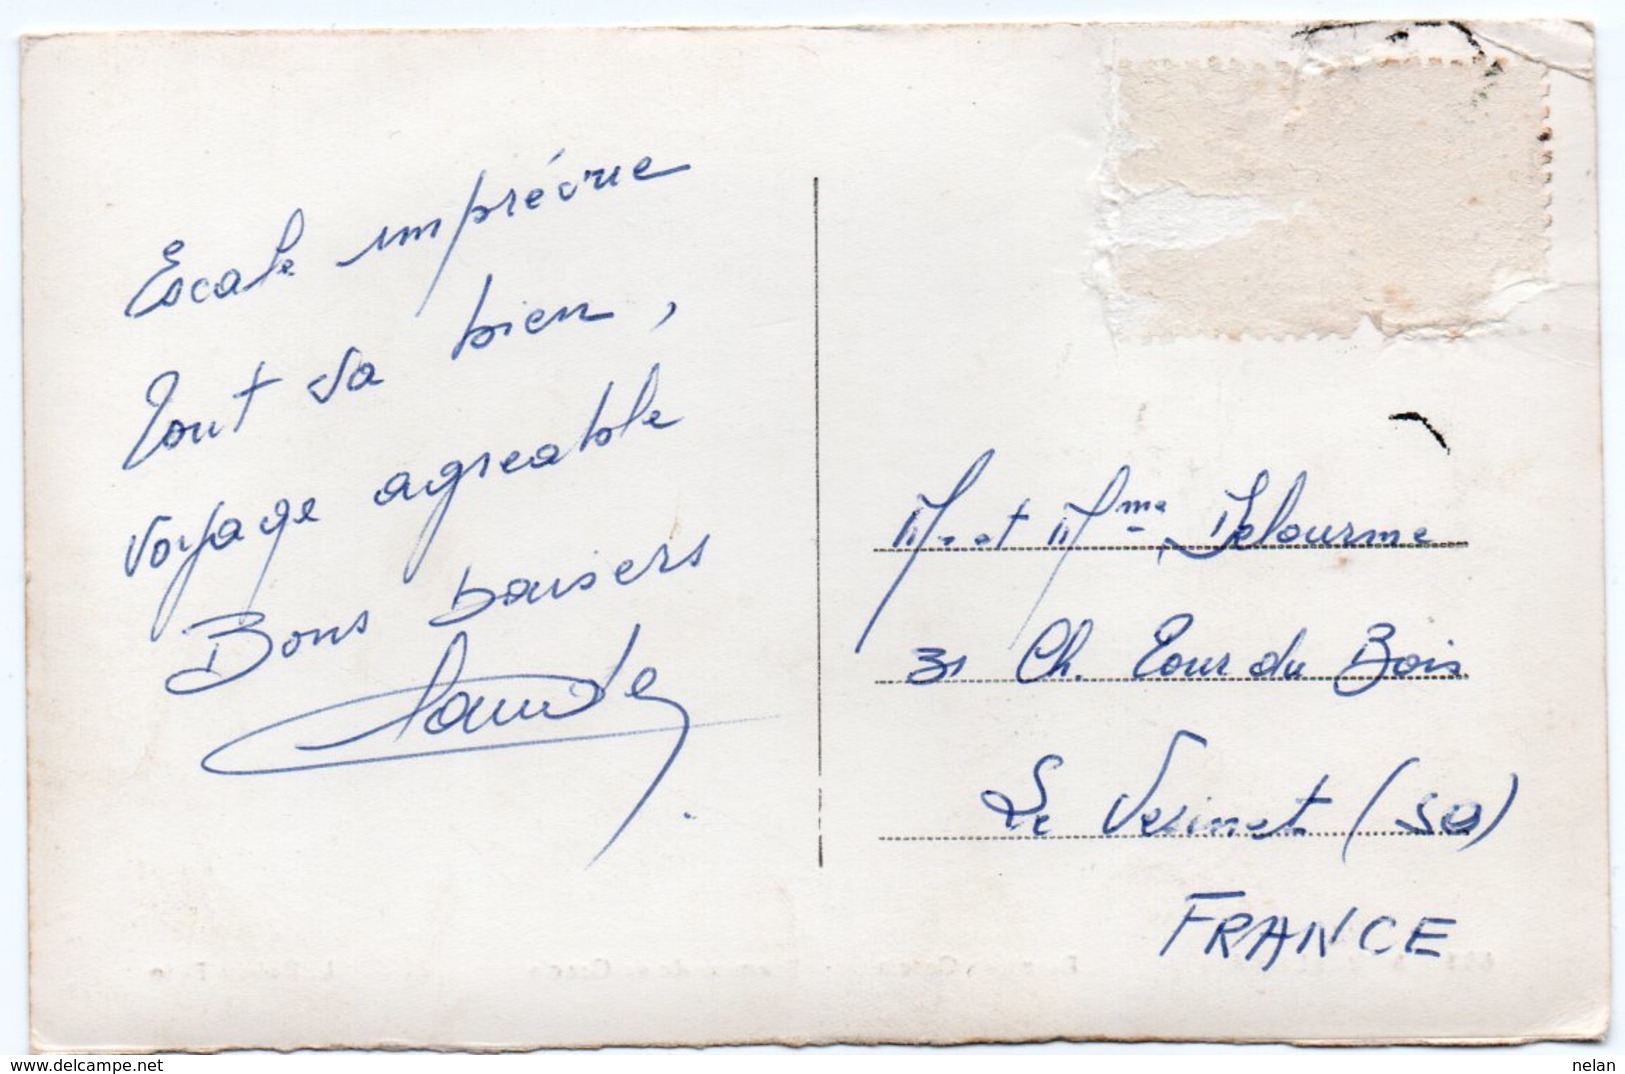 Escale imprévue
Tout va bien,
voyage agreable
Bons baisers
Claude
M. et Mme Delourme
31 Ch. Tour du Bois
Le Vesinet (SO)
FRANCE
www.delcampe.net
nelan